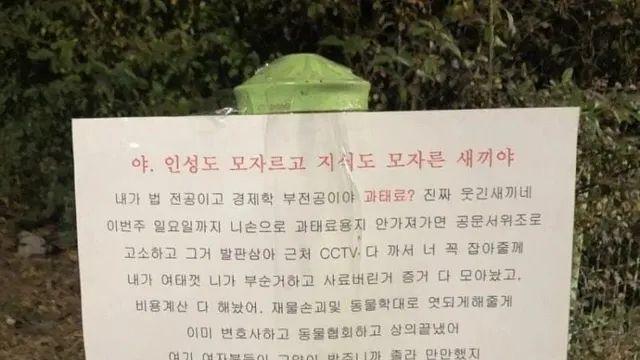 야. 인성도 모자르고 지식도 모자른 새끼야
내가 법 전공이고 경제학 부전공이야 과태료? 진짜 웃긴새끼네
이번주 일요일까지 니손으로 과태료용지 안가져가면 공문서위조로
고소하고 그거 발판삼아 근처 CCTV 다 까서 너 꼭 잡아줄께
내가 여태껏 니가 부순거하고 사료버린거 증거 다 모아놨고,
비용계산 다 해놨어. 재물손괴및 동물학대로 엿되게해줄게
이미 변호사하고 동물협회하고 상의끝냈어
여기 여자분들이 고양이 밥주니까 졸라 만만했지